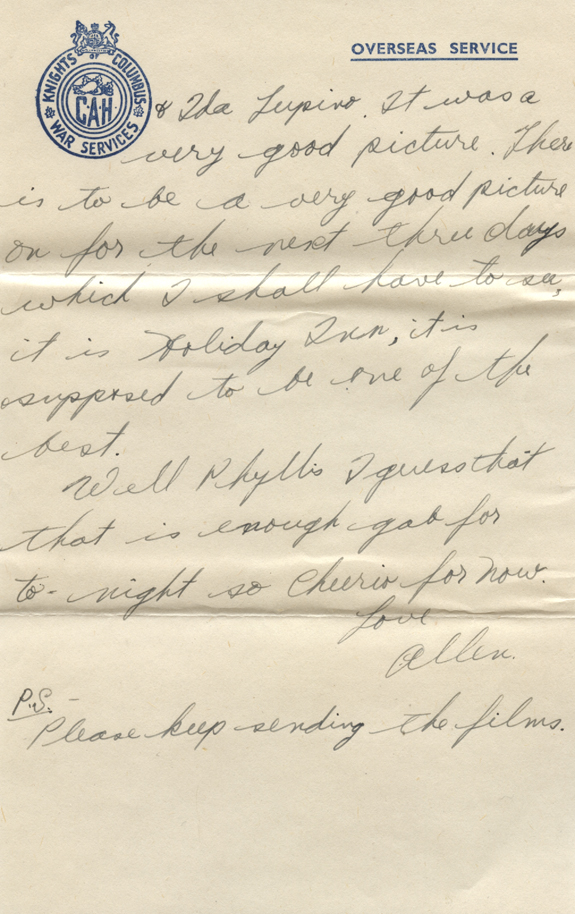 OVERSEAS SERVICE
KNIGHTS OF COLUMBUS
CAH
WAR SERVICES
& Ida Lupino. It was a
very good picture. There
is to be a very good picture
on for the next three days
which I shall have to see,
it is Holiday Inn, it is
supposed to be one of the
best.
Well Phyllis I guess that
that is enough gab for
to-night so Cheerio for now.
Love
Allen.
P.S. -
Please keep sending the films.